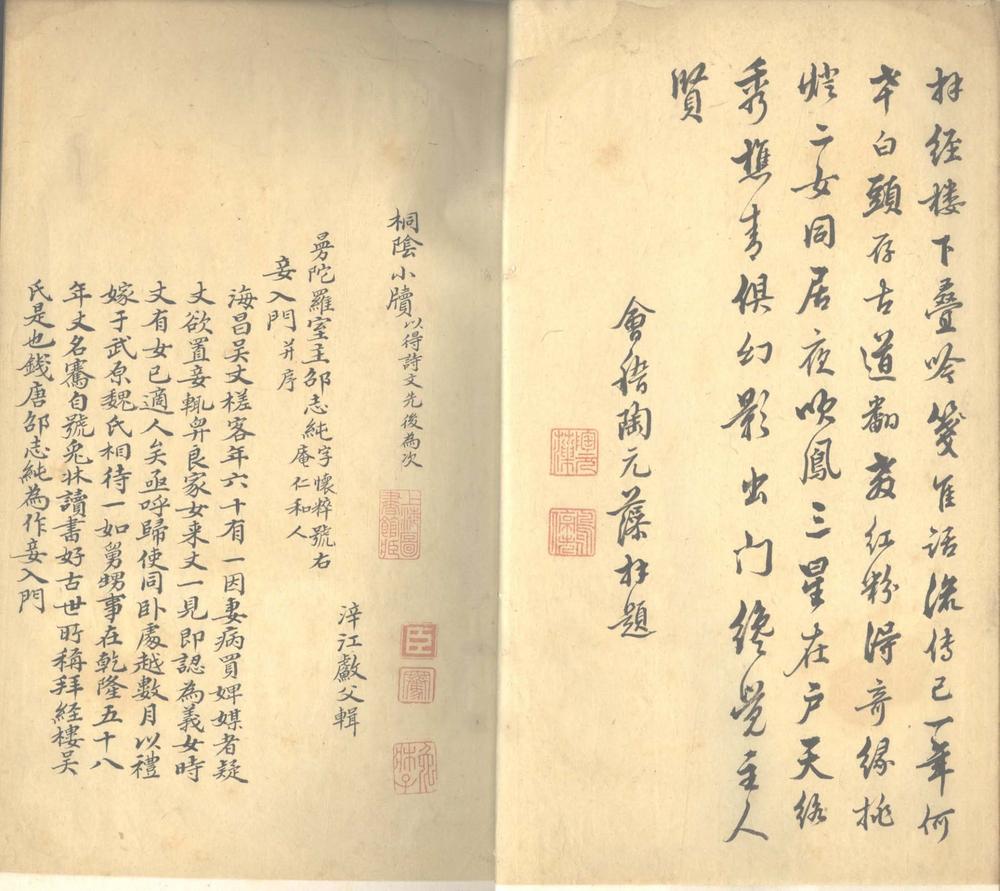 拜经楼下叠吟笺佳话流传已一年何
幸白頭存古道翻教红粉得奇缘桃
燈二女同居夜吹鳳三星在户天络
秀樵青俱幻影出门终觉主人
賢
會稽陶元藻拜題
桐陰小牘以得詩文先後為次
上海圖書館藏
淬江獻父輯
曼陀羅室主邵志純字懷粹號右庵仁和人
妾入門并序
海昌吴丈槎客年六十有一因妻病買婢媒者疑
丈欲置妾輒舁良家女来丈一見即認為義女時
丈有女已適人矣亟呼歸使同卧處越數月以禮
嫁于武原魏氏相待一如舅甥事在乾隆五十八
年丈名騫自號兎牀讀書好古世所稱拜經樓吴
氏是也錢唐邵志純為作妾入門